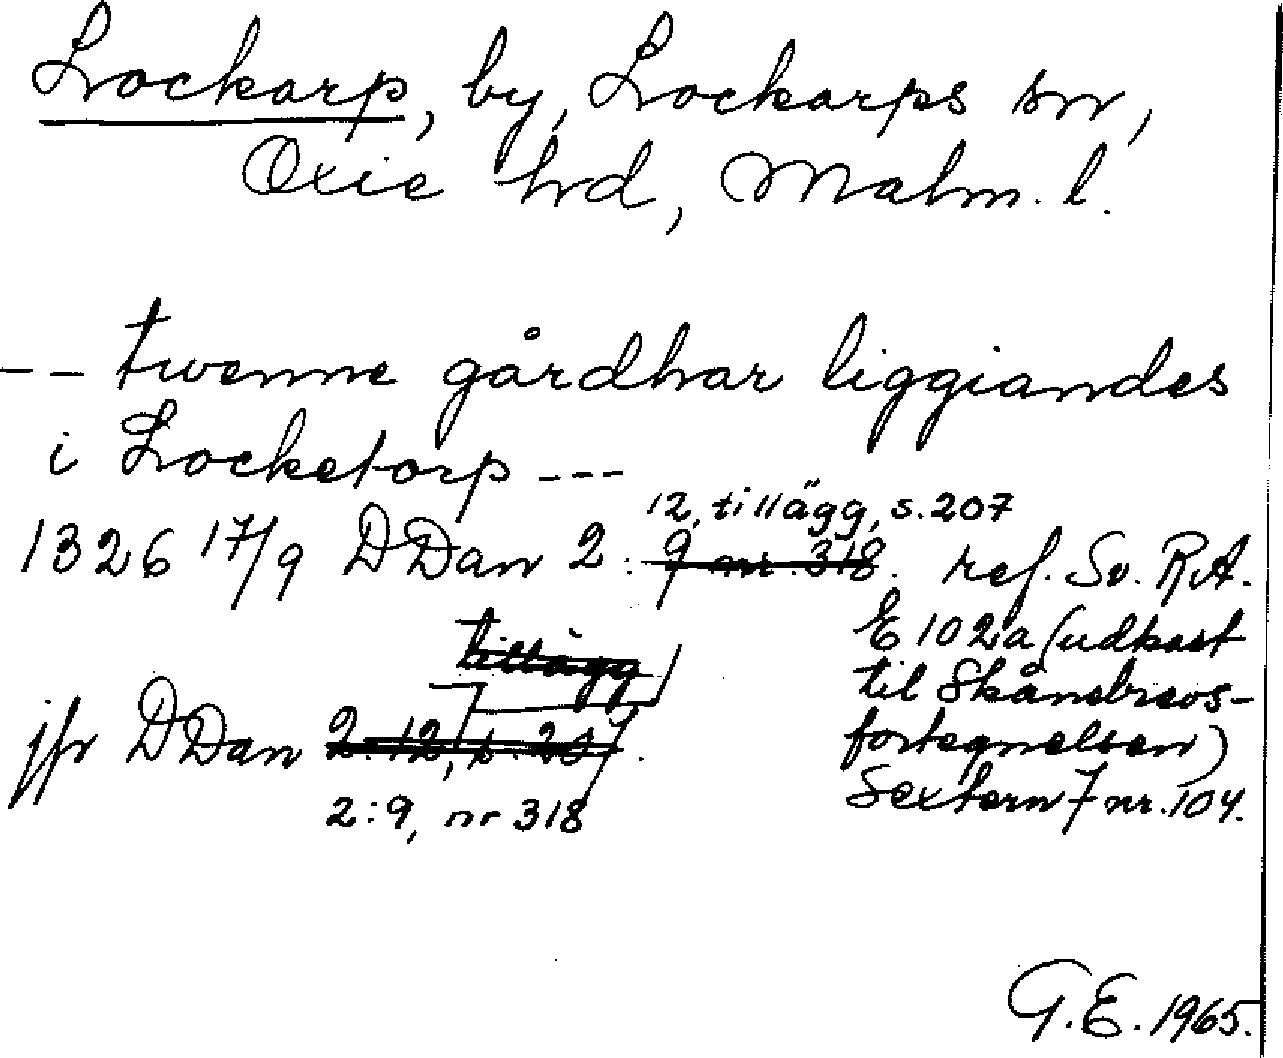 Lockarp, by, Lockarps sn,
Oxie hd, Malm. l.
-- twenne gårdhar liggiandes
i Locketorp ---
12, tillägg, s. 207
1326 17/9 DDan 2: 9 nr. 318. ref. Sv. R.A.
E 102a (udkast
til Skånebrevs-
fortegnelsen)
Sextern 7 nr. 104.
tillägg
jfr DDan 2:12, s. 207.
2:9, nr 318
G.E. 1965.